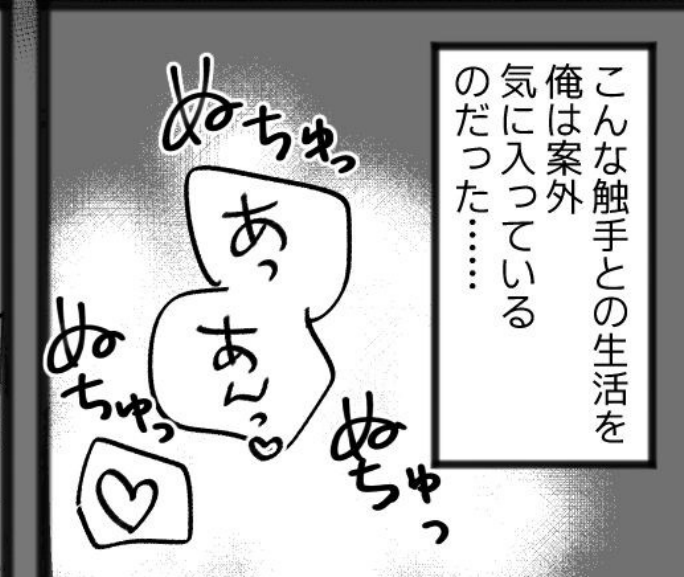 こんな触手との生活を
俺は案外
気に入っている
のだった……
ぬちゅっ
あっ
あんっ♡
ぬちゅっ
ぬちゅっ
♡